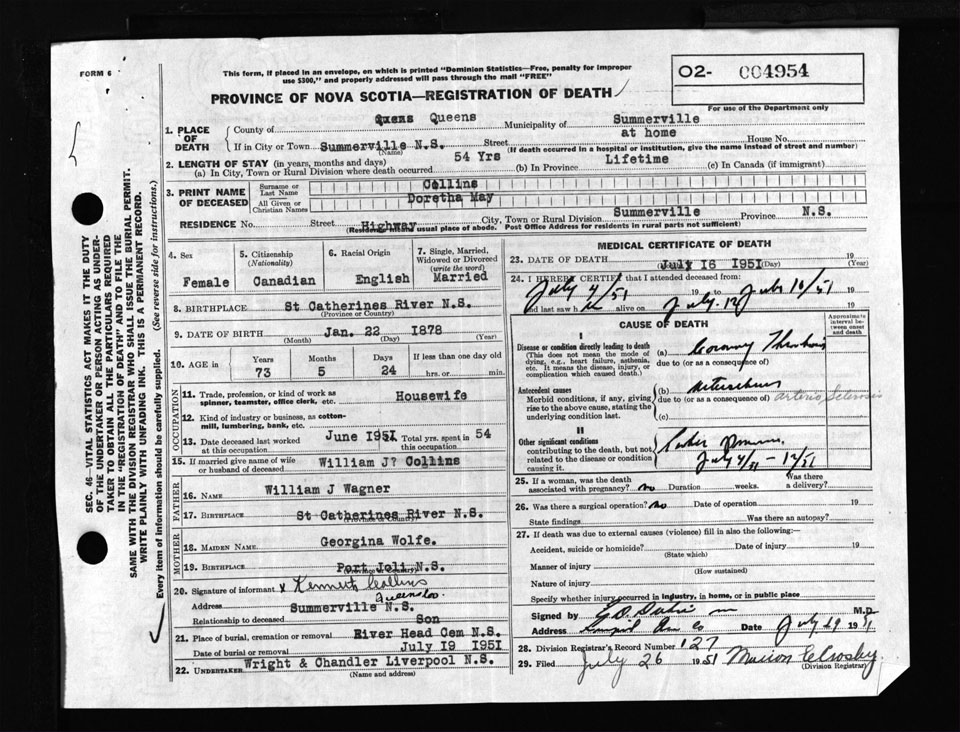 FORM 6
This form, if placed in an envelope, on which is printed "Dominion Statistics—Free, penalty for improper
use $300," and properly addressed will pass through the mail "FREE"
PROVINCE OF NOVA SCOTIA—REGISTRATION OF DEATH
O2- 004954
For use of the Department only
SEC. 46—VITAL STATISTICS ACT MAKES IT THE DUTY
OF THE UNDERTAKER OR PERSON ACTING AS UNDER-
TAKER TO OBTAIN ALL THE PARTICULARS REQUIRED
IN THE "REGISTRATION OF DEATH" AND TO FILE THE
SAME WITH THE DIVISION REGISTRAR WHO SHALL ISSUE THE BURIAL PERMIT.
WRITE PLAINLY WITH UNFADING INK. THIS IS A PERMANENT RECORD.
Every item of information should be carefully supplied. (See reverse side for instructions.)
1. PLACE OF DEATH
County of Queens Municipality of Summerville
If in City or Town Summerville N.S. Street at home House No.
(Name) (If death occurred in a hospital or institution, give the name instead of street and number)
2. LENGTH OF STAY (in years, months and days)
(a) In City, Town or Rural Division where death occurred 54 Yrs (b) In Province Lifetime (c) In Canada (if immigrant)
3. PRINT NAME OF DECEASED
Surname or Last Name Collins
All Given or Christian Names Doretha May
RESIDENCE No. Street Highway City, Town or Rural Division Summerville Province N.S.
(Residence means usual place of abode. Post Office Address for residents in rural parts not sufficient)
4. Sex Female
5. Citizenship (Nationality) Canadian
6. Racial Origin English
7. Single, Married, Widowed or Divorced (write the word) Married
8. BIRTHPLACE St Catherines River N.S.
(Province or Country)
9. DATE OF BIRTH Jan. 22 1878
(Month) (Day) (Year)
10. AGE in Years 73 Months 5 Days 24 If less than one day old hrs. or min.
OCCUPATION
11. Trade, profession, or kind of work as spinner, teamster, office clerk, etc. Housewife
12. Kind of industry or business, as cotton-mill, lumbering, bank, etc.
13. Date deceased last worked at this occupation June 1951 Total yrs. spent in this occupation 54
15. If married give name of wife or husband of deceased William J? Collins
FATHER
16. NAME William J Wagner
17. BIRTHPLACE St Catherines River N.S.
(Province or Country)
MOTHER
18. MAIDEN NAME Georgina Wolfe.
19. BIRTHPLACE Port Joli N.S.
(Province or Country)
20. Signature of informant x Kenneth Collins
Address Summerville N.S. Queens Co
Relationship to deceased Son
21. Place of burial, cremation or removal River Head Cem N.S.
Date of burial or removal July 19 1951
22. UNDERTAKER Wright & Chandler Liverpool N.S.
(Name and address)
MEDICAL CERTIFICATE OF DEATH
23. DATE OF DEATH July 16 1951 19
(Month) (Day) (Year)
24. I HEREBY CERTIFY that I attended deceased from:
July 4/51 19 to July 16/51 19
and last saw h alive on July 12 19
CAUSE OF DEATH
Approximate interval between onset and death
I
Disease or condition directly leading to death
(This does not mean the mode of dying, e.g., heart failure, asthenia, etc. It means the disease, injury, or complication which caused death.)
(a) Coronary Thrombosis
due to (or as a consequence of)
Antecedent causes
Morbid conditions, if any, giving rise to the above cause, stating the underlying condition last.
(b)
due to (or as a consequence of) Arterio Sclerosis
(c)
II
Other significant conditions
contributing to the death, but not related to the disease or condition causing it.
July 4/51 – 12/51
25. If a woman, was the death associated with pregnancy? no Duration weeks. Was there a delivery?
26. Was there a surgical operation? no Date of operation 19
State findings Was there an autopsy?
27. If death was due to external causes (violence) fill in also the following:—
Accident, suicide or homicide? Date of injury 19
(State which)
Manner of injury
(How sustained)
Nature of injury
Specify whether injury occurred in industry, in home, or in public place
Signed by M.D.
Address Date July 19 1951
28. Division Registrar's Record Number 127
29. Filed July 26 1951 Marion C Crosby
(Division Registrar)